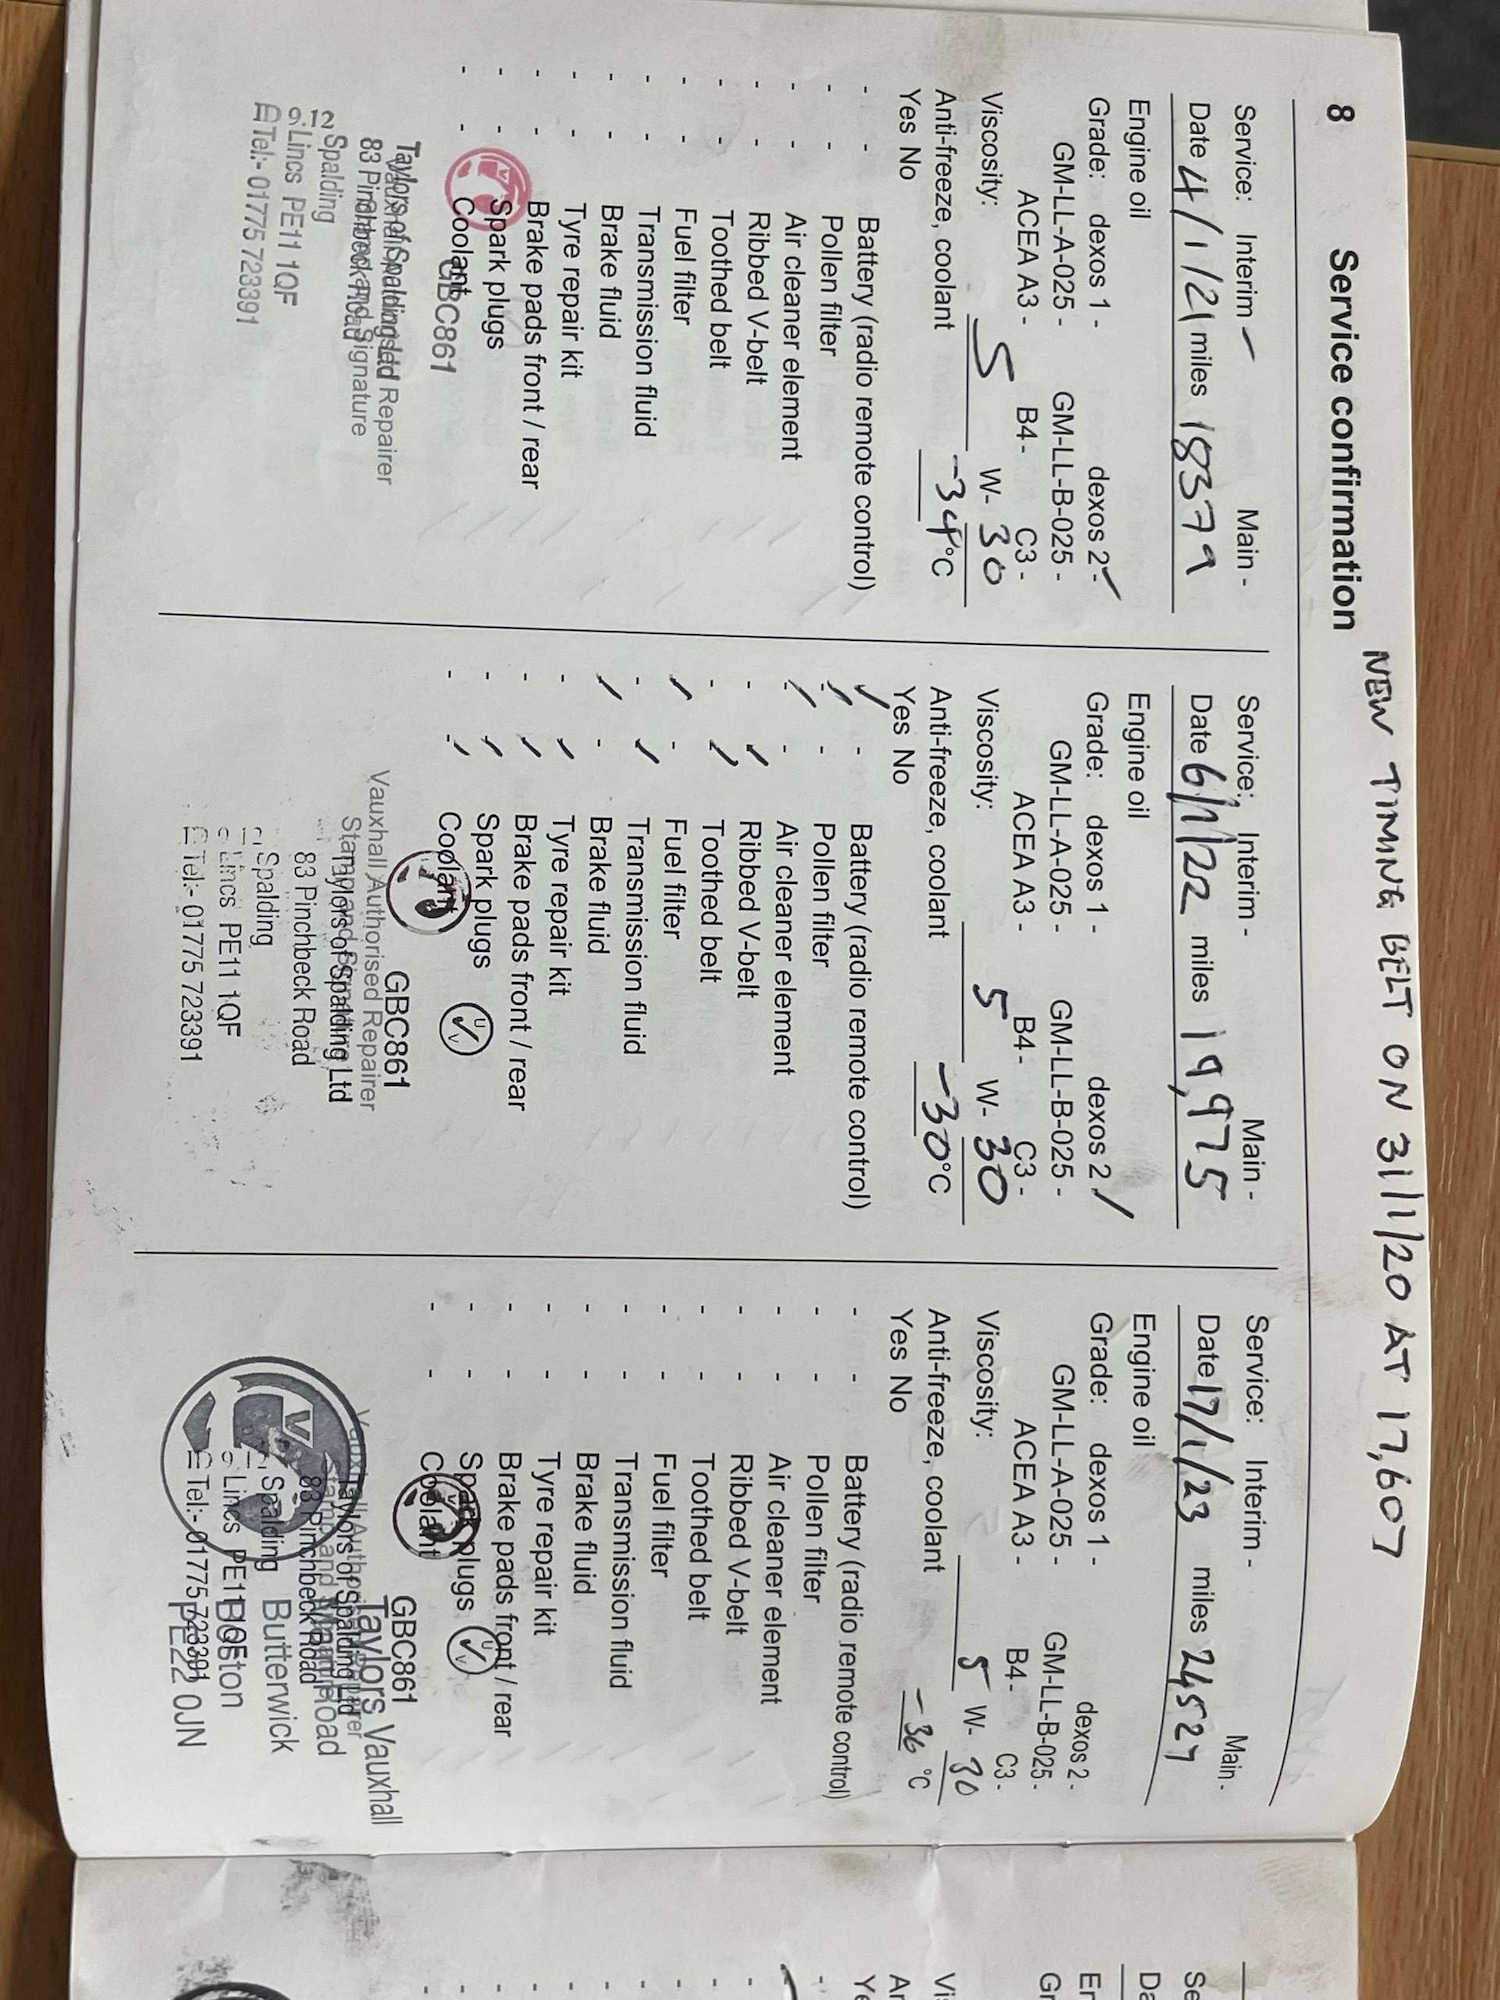 NEW TIMING BELT ON 31/1/20 AT 17,607
8 Service confirmation
Service: Interim ✓ Main -
Date 4/1/21 miles 18379
Engine oil
Grade: dexos 1 - dexos 2 - ✓
GM-LL-A-025 - GM-LL-B-025 -
ACEA A3 - B4 - C3 -
Viscosity: 5 W- 30
Anti-freeze, coolant -34°C
Yes No
- - Battery (radio remote control)
- - Pollen filter
- - Air cleaner element
- - Ribbed V-belt
- - Toothed belt
- - Fuel filter
- - Transmission fluid
- - Brake fluid
- - Tyre repair kit
- - Brake pads front / rear
- - Spark plugs
- - Coolant
GBC861
Taylors of Spalding Ltd
83 Pinchbeck Road
Spalding
Lincs PE11 1QF
Tel:- 01775 723391
Service: Interim - Main -
Date 6/1/22 miles 19,975
Engine oil
Grade: dexos 1 - dexos 2 /
GM-LL-A-025 - GM-LL-B-025 -
ACEA A3 - B4 - C3 -
Viscosity: 5 W- 30
Anti-freeze, coolant -30°C
Yes No
✓ - Battery (radio remote control)
✓ - Pollen filter
✓ - Air cleaner element
- ✓ Ribbed V-belt
- ✓ Toothed belt
✓ - Fuel filter
- ✓ Transmission fluid
✓ - Brake fluid
- ✓ Tyre repair kit
- ✓ Brake pads front / rear
- ✓ Spark plugs
- ✓ Coolant
GBC861
Vauxhall Authorised Repairer
Taylors of Spalding Ltd
83 Pinchbeck Road
Spalding
Lincs PE11 1QF
Tel:- 01775 723391
Service: Interim - Main -
Date 17/1/23 miles 24527
Engine oil
Grade: dexos 1 - dexos 2 -
GM-LL-A-025 - GM-LL-B-025 -
ACEA A3 - B4 - C3 -
Viscosity: 5 W- 30
Anti-freeze, coolant -36 °C
Yes No
- - Battery (radio remote control)
- - Pollen filter
- - Air cleaner element
- - Ribbed V-belt
- - Toothed belt
- - Fuel filter
- - Transmission fluid
- - Brake fluid
- - Tyre repair kit
- - Brake pads front / rear
- - Spark plugs
- - Coolant
GBC861
Taylors Vauxhall
Taylors of Spalding Ltd
Road
83 Pinchbeck Road
Butterwick
Spalding
Boston
Lincs PE11 1QF
PE22 0JN
Tel:- 01775 723391